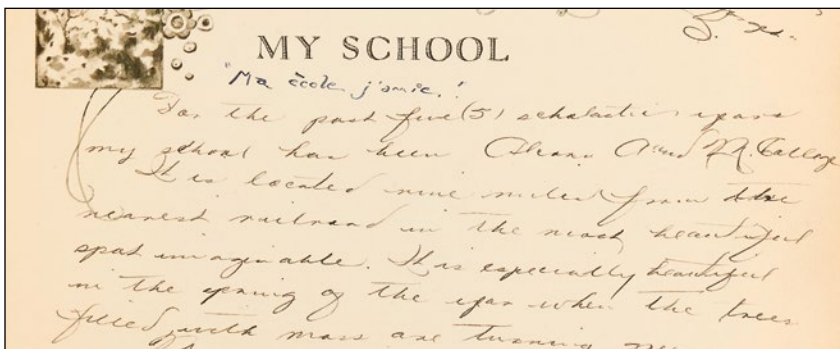 MY SCHOOL
"Ma école j'amie."
For the past five (5) scholastic years
my school has been Alcorn A and M. College
It is located nine miles from the
nearest railroad in the most beautiful
spot imaginable. It is especially beautiful
in the spring of the year when the trees
filled with moss are turning